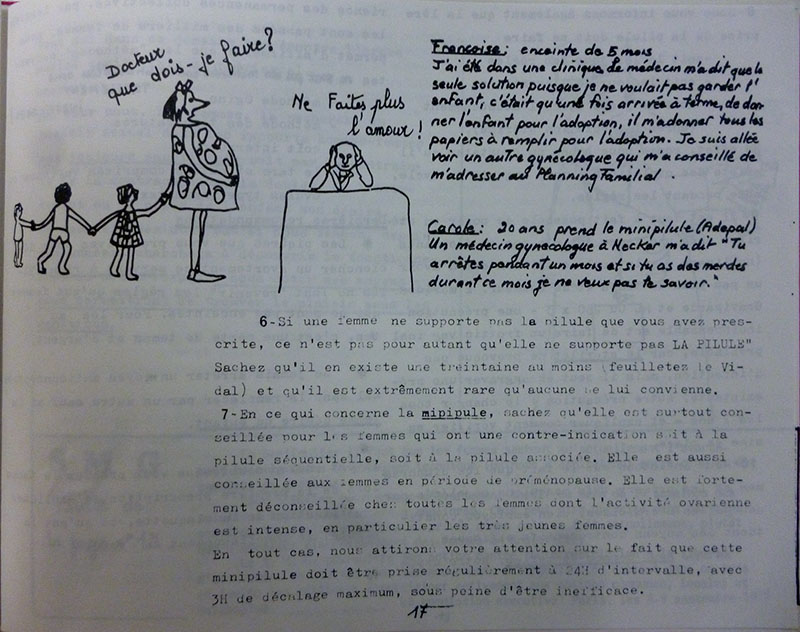 Docteur
que dois-je faire?
Ne Faites plus
l'amour!
Françoise: enceinte de 5 mois
J'ai été dans une clinique. Le médecin m'a dit que la
seule solution puisque je ne voulait pas garder l'
enfant, c'était qu'une fois arrivée à terme, de don-
ner l'enfant pour l'adoption, il m'a donner tous les
papiers à remplir pour l'adoption. Je suis allée
voir un autre gynécologue qui m'a conseillé de
m'adresser au Planning Familial.
Carole: 20 ans prend le minipilule (Adepal)
Un médecin gynecologue à Necker m'a dit "Tu
arrêtes pendant un mois et si tu as des merdes
durant ce mois je ne veux pas te savoir."
6-Si une femme ne supporte pas la pilule que vous avez pres-
crite, ce n'est pas pour autant qu'elle ne supporte pas LA PILULE"
Sachez qu'il en existe une treintaine au moins (feuilletez le Vi-
dal) et qu'il est extrêmement rare qu'aucune ne lui convienne.
7-En ce qui concerne la mipipule, sachez qu'elle est surtout con-
seillée pour les femmes qui ont une contre-indication soit à la
pilule séquentielle, soit à la pilule associée. Elle est aussi
conseillée aux femmes en période de préménopause. Elle est forte-
ment déconseillée chez toutes les femmes dont l'activité ovarienne
est intense, en particulier les très jeunes femmes.
En tout cas, nous attirons votre attention sur le fait que cette
minipilule doit être prise régulièrement à 24H d'intervalle, avec
3H de décalage maximum, sous peine d'être inefficace.
17